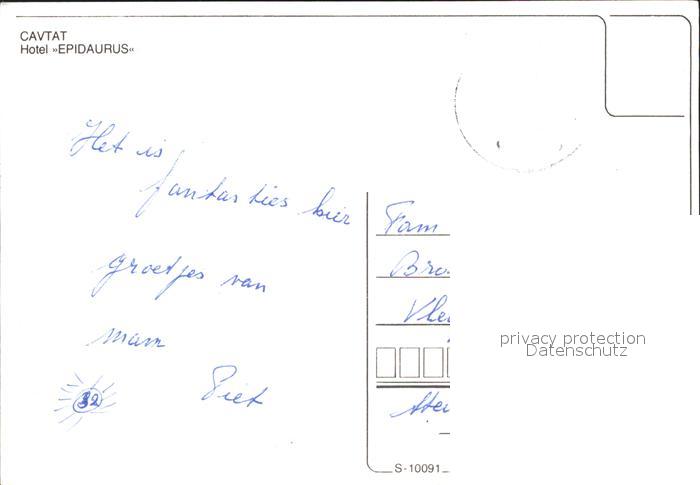 CAVTAT
Hotel »EPIDAURUS«
Het is
fantasties hier
groetjes van
mam
Piet
32
Fam
Bro
Vle
privacy protection
Datenschutz
S-10091